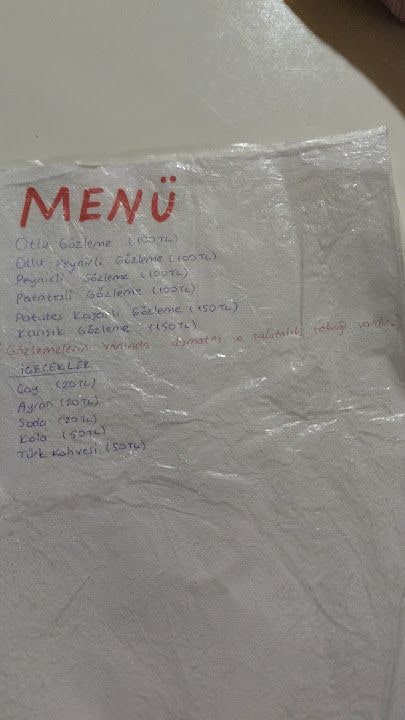 MENÜ
Otlu Gözleme (100TL)
Otlu Peynirli Gözleme (100TL)
Peynirli Gözleme (100TL)
Patatesli Gözleme (100TL)
Patates Kaşarlı Gözleme (150TL)
Karışık Gözleme (150TL)
Gözlemelerin Yanında domates ve salatalık tabağı vardır.
İÇECEKLER
Çay (20TL)
Ayran (20TL)
Soda (20TL)
Kola (50TL)
Türk Kahvesi (50TL)